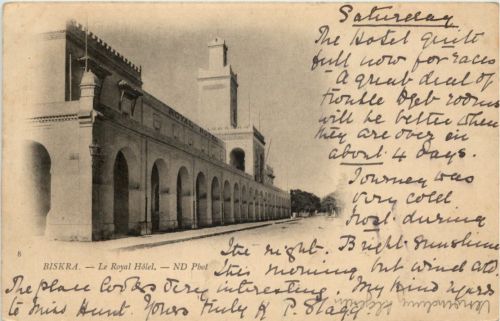 Saturday
The Hotel quite
full now for races
A great deal of
trouble to get rooms
will be better when
they are over in
about 4 days.
Journey was
very cold
frost during
the night. Bright sunshine
this morning but wind cold
The place looks very interesting. My kind regards
to Miss Hunt. Yours truly K P. Stagg
ROYAL HOTEL
8
BISKRA. — Le Royal Hôtel. — ND Phot